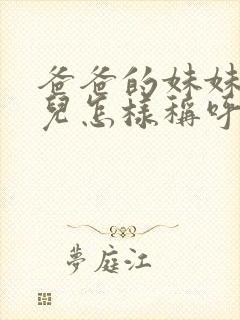 爸爸的妹妹
兒怎樣稱呼
夢庭江